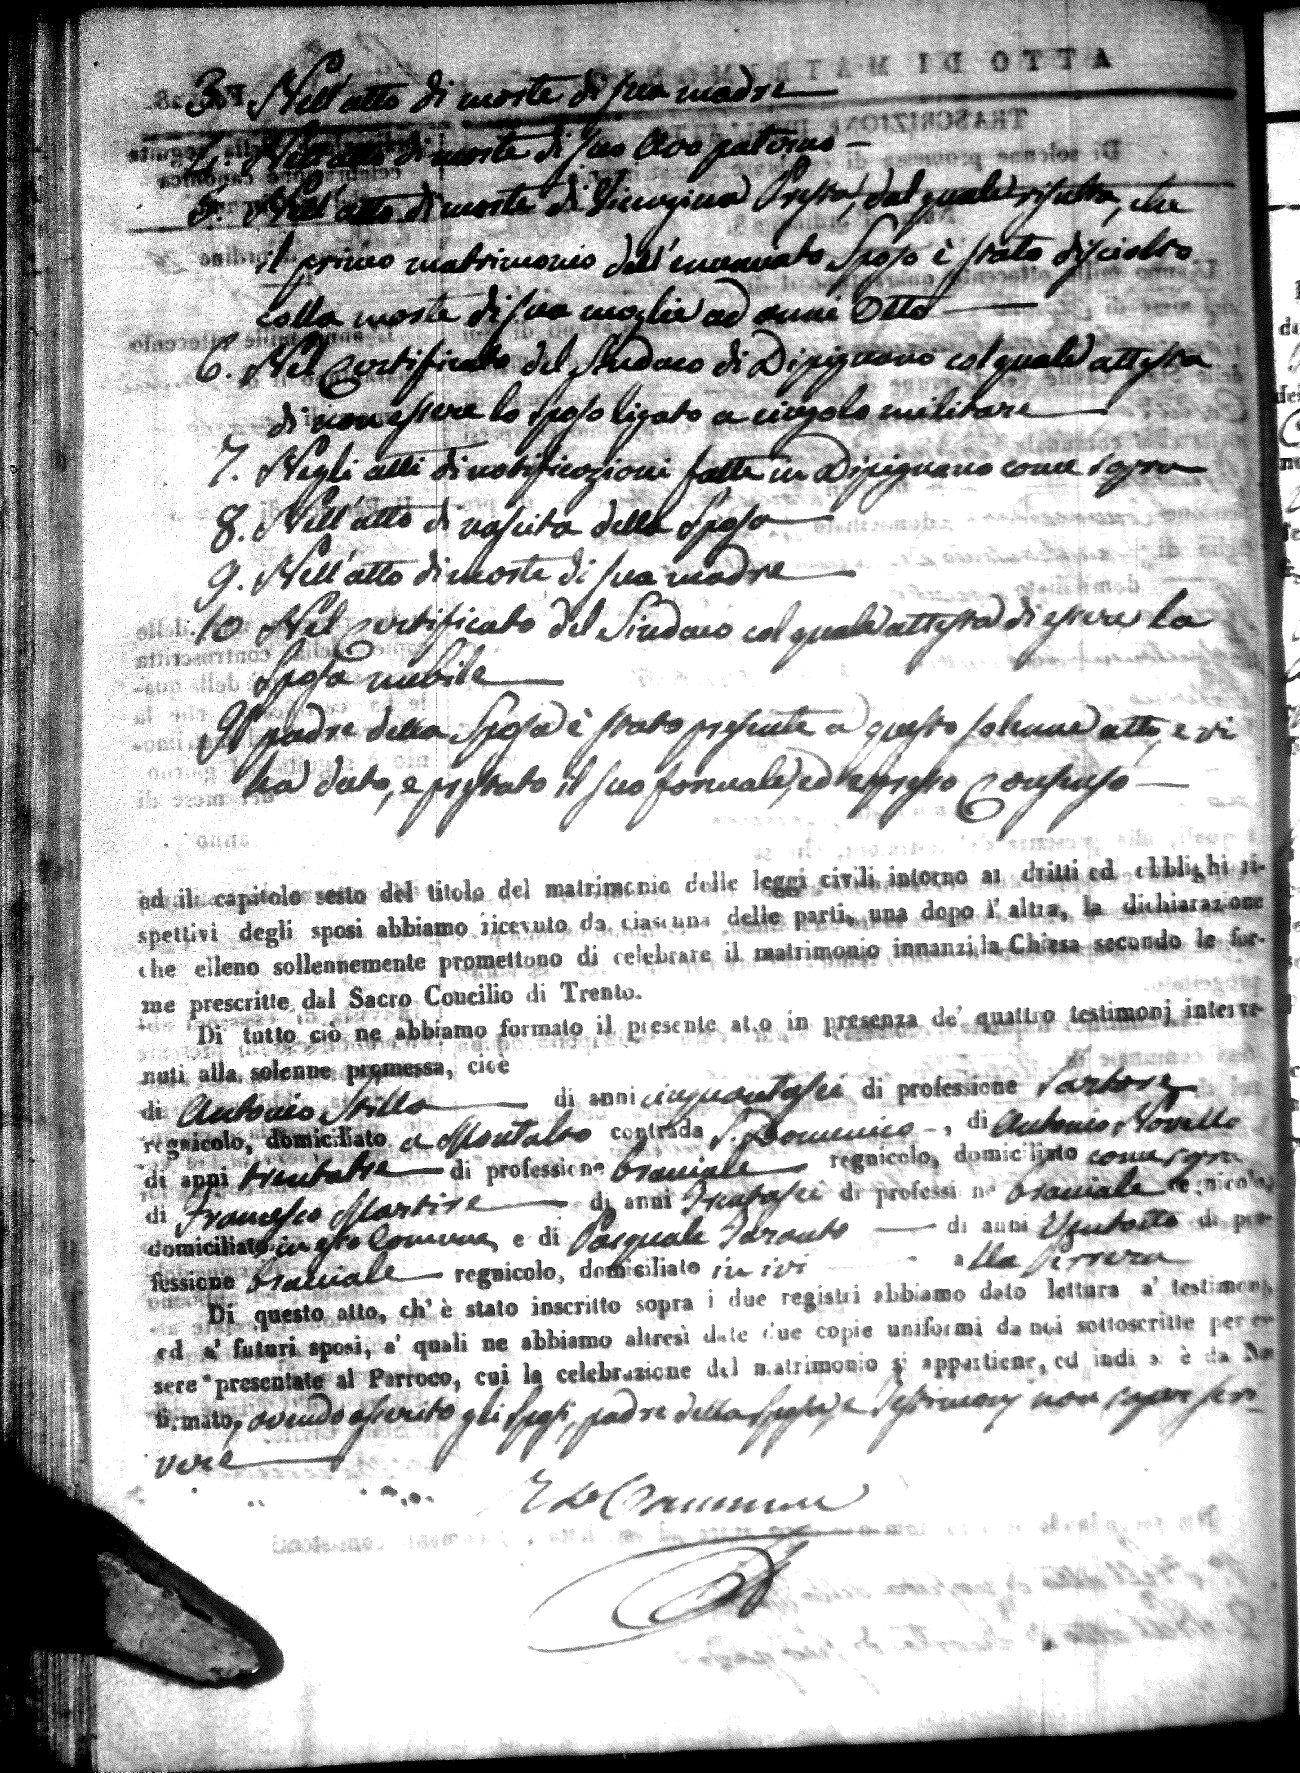 3. Nell'atto di morte di sua madre
4. Nell'atto di morte di suo Avo paterno
5. Nell'atto di morte di dal quale risulta, che
il primo matrimonio dell'enunciato Sposo è stato disciolto
colla morte di sua moglie ad anni Otto
6. Nel Certificato del Sindaco di Dipignano col quale attesta
di non essere lo sposo ligato a cingolo militare
7. Negli atti di notificazioni fatte in Dipignano come sopra
8. Nell'atto di nascita della Sposa
9. Nell'atto di morte di sua madre
10 Nel Certificato del Sindaco col quale attesta di essere la
Sposa nubile
Il padre della Sposa è stato presente a questo solenne atto, e vi
ha dato, e prestato il suo formale, ed espresso Consenso
ed il capitolo sesto del titolo del matrimonio delle leggi civili intorno ai dritti ed obblighi ri-
spettivi degli sposi abbiamo ricevuto da ciascuna delle parti, una dopo l'altra, la dichiarazione
che elleno sollennemente promettono di celebrare il matrimonio innanzi la Chiesa secondo le for-
me prescritte dal Sacro Concilio di Trento.
Di tutto ciò ne abbiamo formato il presente atto in presenza de' quattro testimonj interve-
nuti alla solenne promessa, cioè
di Antonio Stillo di anni cinquantasei di professione Sartore
regnicolo, domiciliato a Montalto contrada S. Domenico, di Antonio Novello
di anni trentatre di professione bracciale regnicolo, domiciliato come sopra
di Francesco Martire di anni trentasei di professione bracciale regnicolo,
domiciliato in esso Comune e di Pasquale Taranto di anni Ventotto di pro-
fessione bracciale regnicolo, domiciliato in ivi alla
Di questo atto, ch'è stato inscritto sopra i due registri abbiamo dato lettura a' testimonj
ed a' futuri sposi, a' quali ne abbiamo altresì date due copie uniformi da noi sottoscritte per es-
sere presentate al Parroco, cui la celebrazione del matrimonio si appartiene, ed indi si è da Noi
firmato, avendo asserito gli Sposi, padre della Sposa, e Testimonj non saper scri-
vere